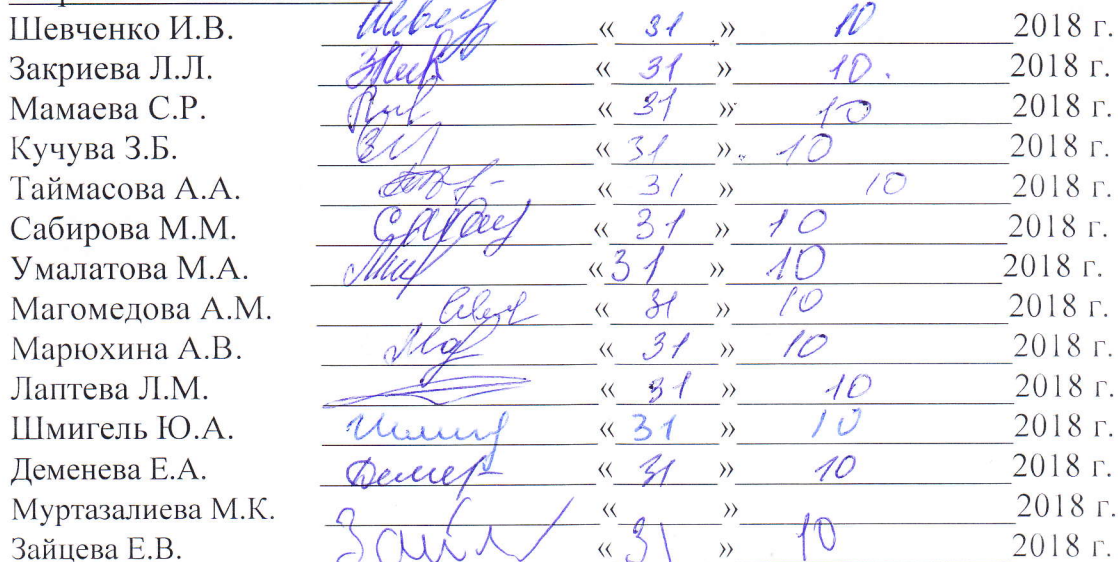 Шевченко И.В. « 31 » 10 2018 г.
Закриева Л.Л. « 31 » 10. 2018 г.
Мамаева С.Р. « 31 » 10 2018 г.
Кучува З.Б. « 31 » 10 2018 г.
Таймасова А.А. « 31 » 10 2018 г.
Сабирова М.М. « 31 » 10 2018 г.
Умалатова М.А. « 31 » 10 2018 г.
Магомедова А.М. « 31 » 10 2018 г.
Марюхина А.В. « 31 » 10 2018 г.
Лаптева Л.М. « 31 » 10 2018 г.
Шмигель Ю.А. « 31 » 10 2018 г.
Деменева Е.А. « 31 » 10 2018 г.
Муртазалиева М.К. « » 2018 г.
Зайцева Е.В. « 31 » 10 2018 г.